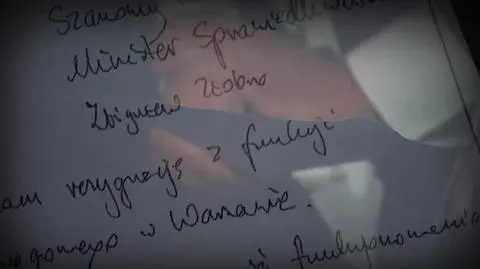 Szanowny
Minister Sprawiedliwości
Zbigniew Ziobro
am rezygnację z funkcji
w Warszawie.
funkcjonowania